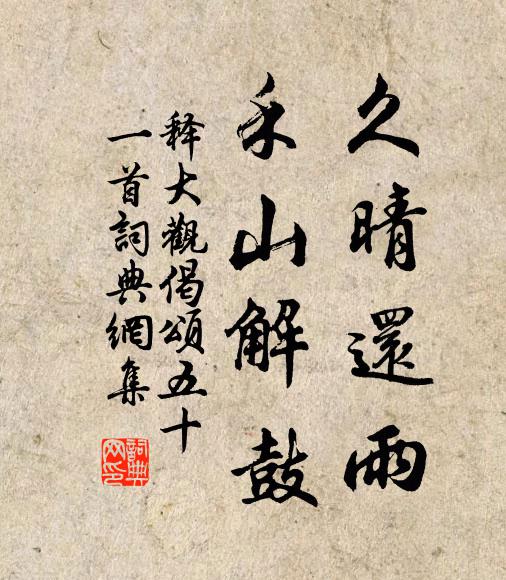 久晴還雨
禾山解鼓
释大觀偈頌五十
一首詞典網集
詞典
网印